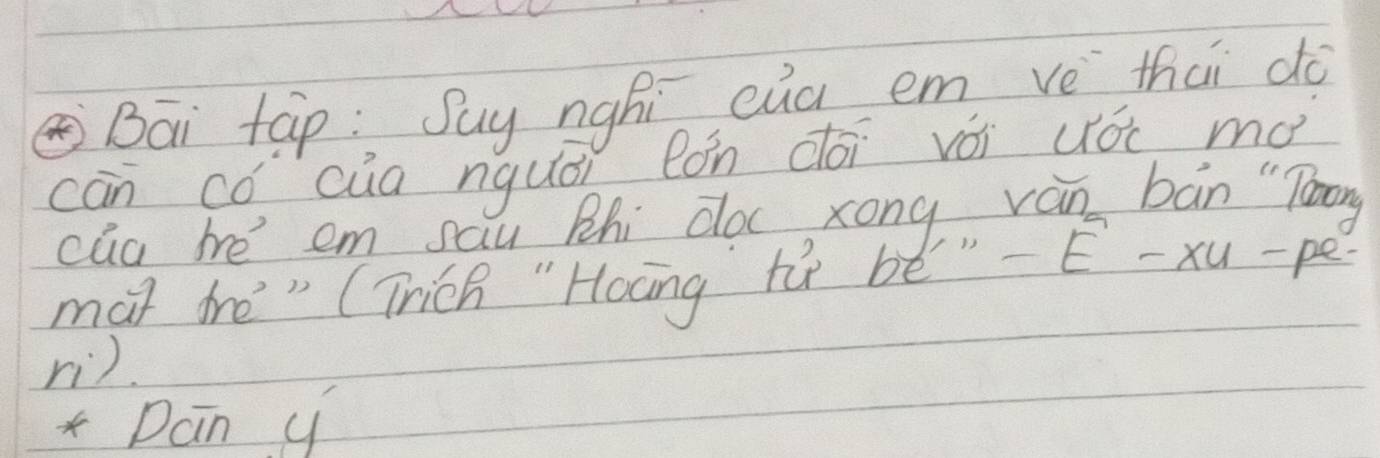 * Bài tập: Suy nghĩ của em về thái độ
cần có của người lớn đối với ước mơ
của trẻ em sau khi đọc xong văn bản "Trong
mắt trẻ" (Trích "Hoàng tử bé" - Ê - xu - pe -
ri).
* Dàn ý